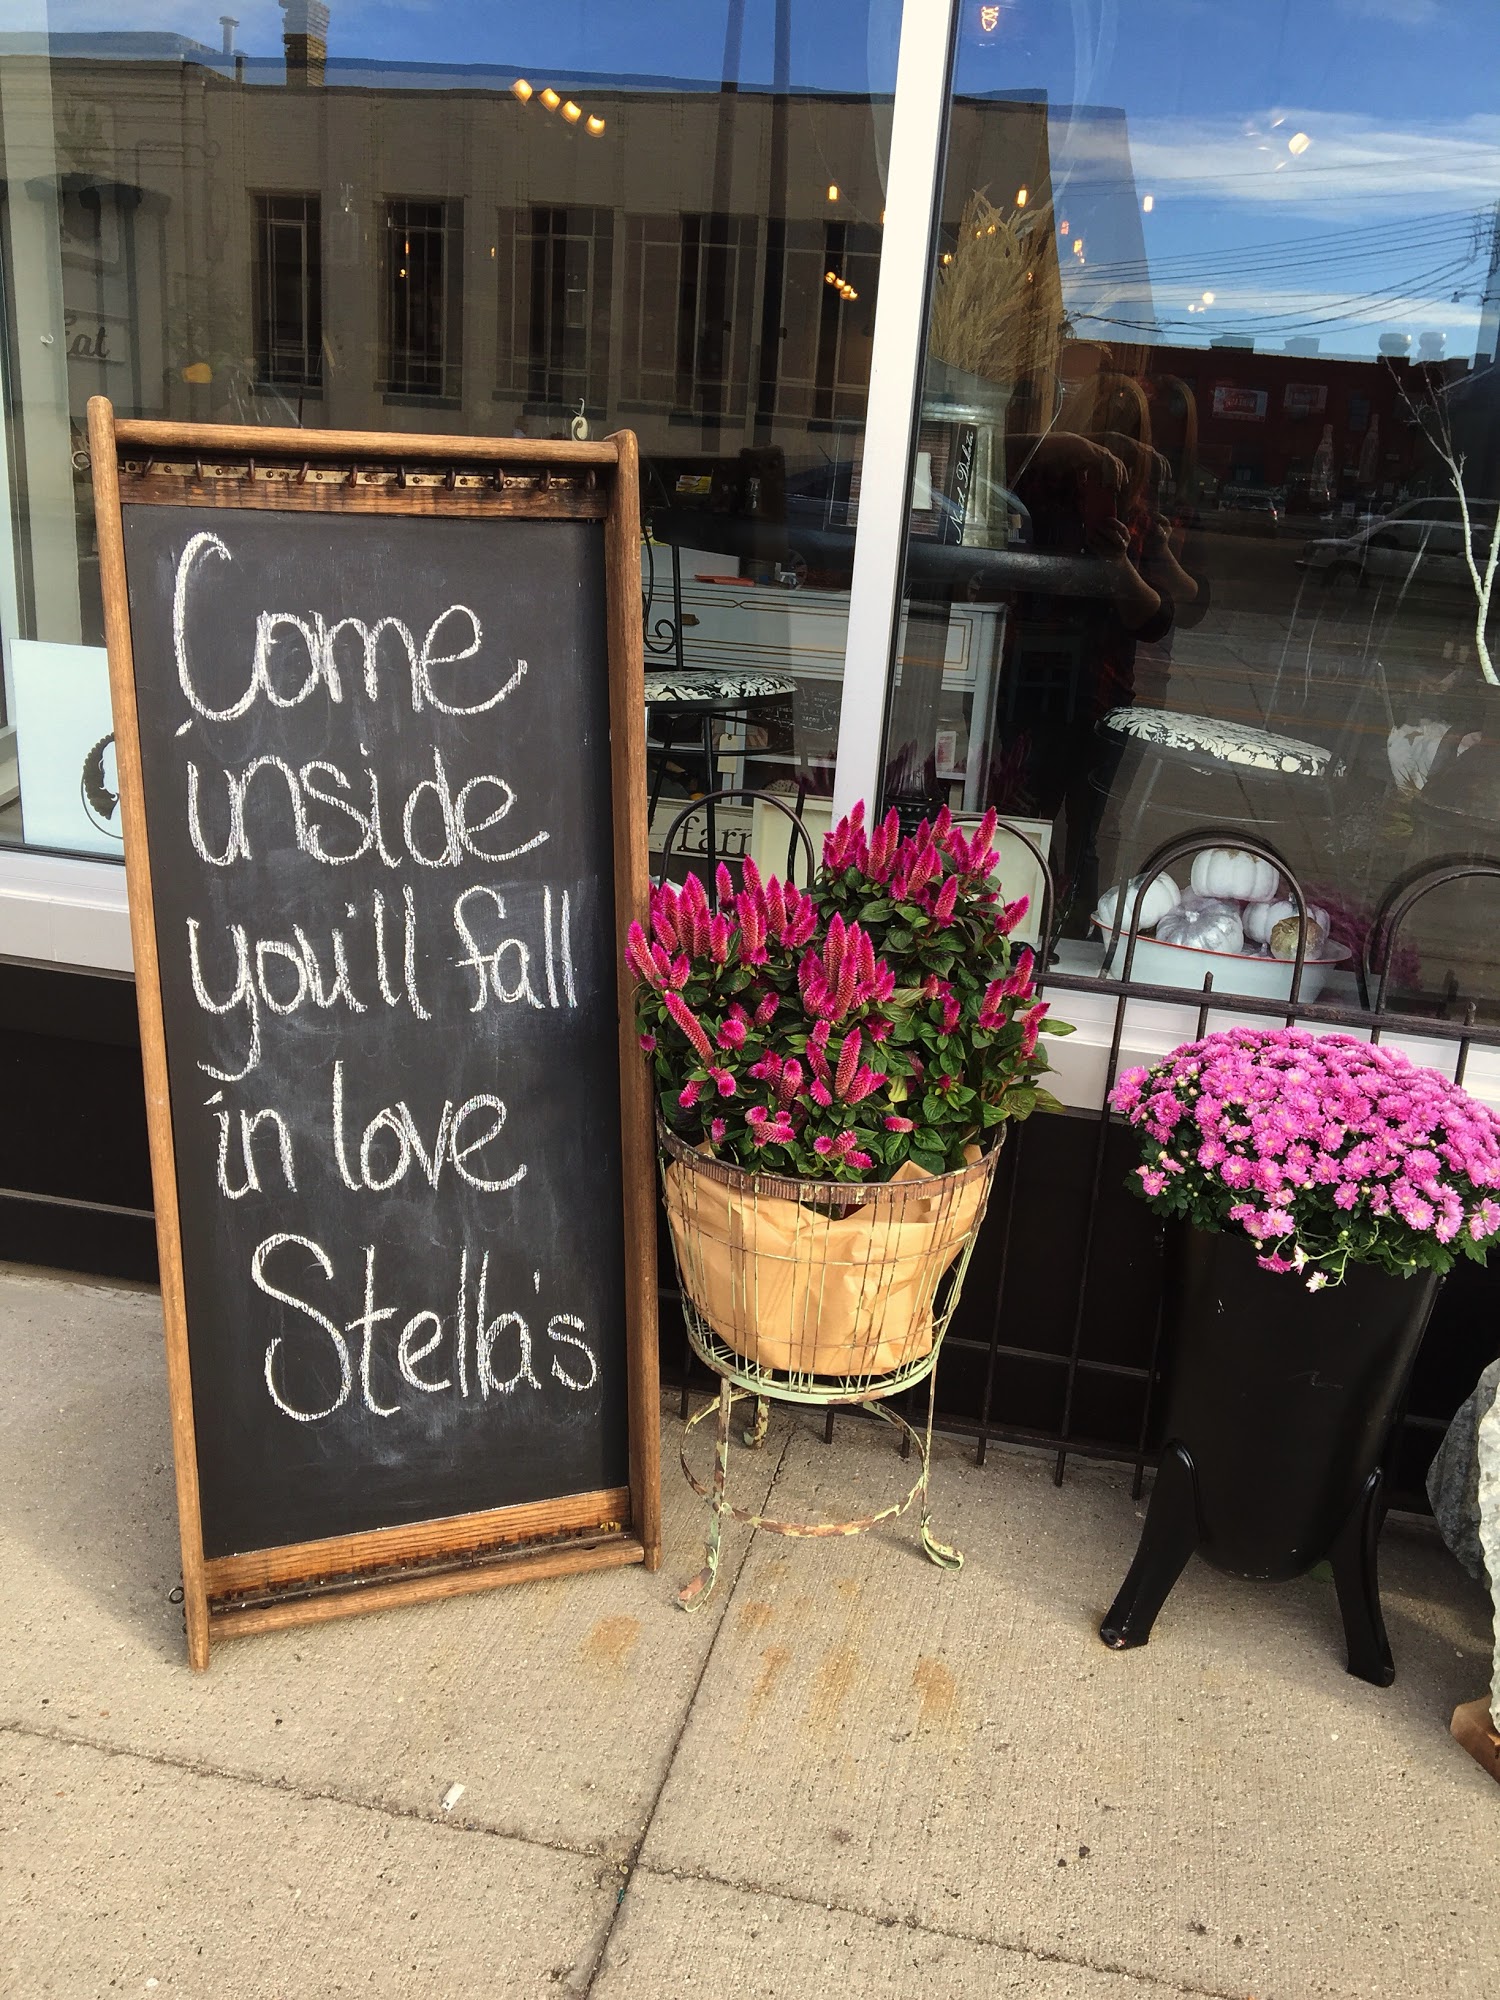 Come
inside
you'll fall
in love
Stella's
Eat
North Dakota
farm